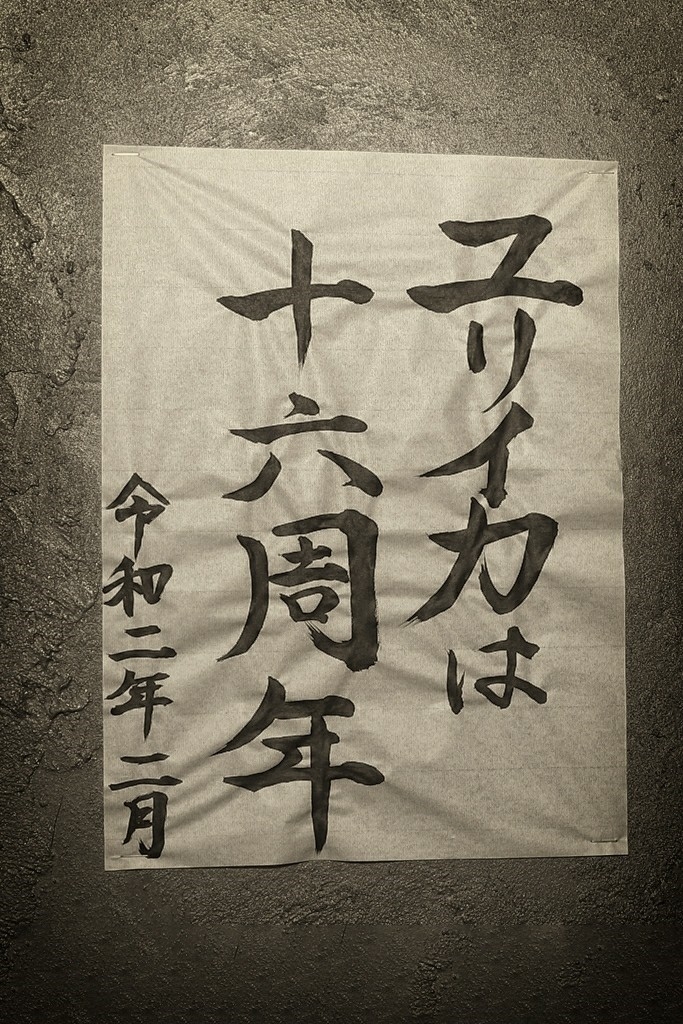 ユリイカは
十六周年
令和二年二月